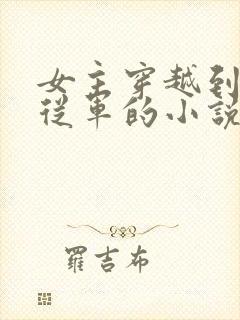 女主穿越到
從軍的小說
羅吉布